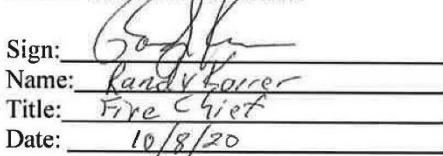 Sign:
Name: Randy
Title: Fire Chief
Date: 10/8/20